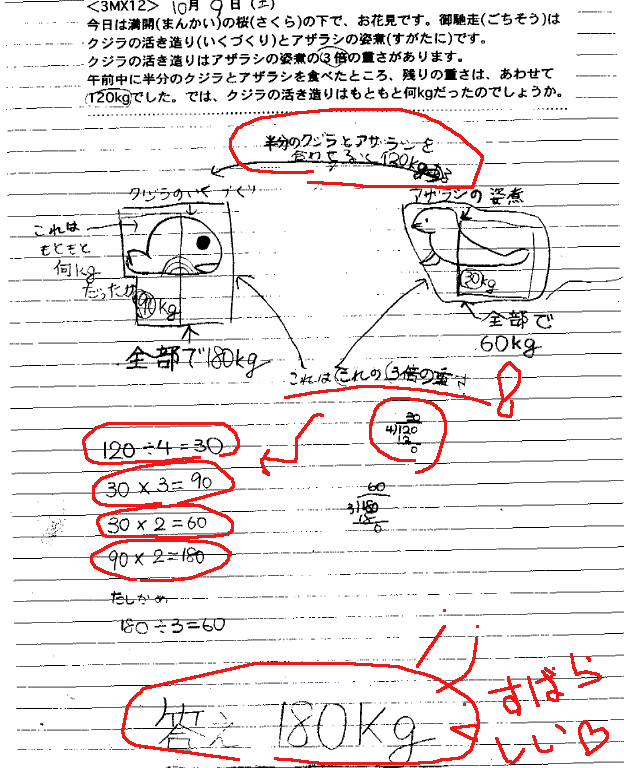 <3MX12> 10月 9日 (土)
今日は満開(まんかい)の桜(さくら)の下で、お花見です。御馳走(ごちそう)は
クジラの活き造り(いくづくり)とアザラシの姿煮(すがたに)です。
クジラの活き造りはアザラシの姿煮の3倍の重さがあります。
午前中に半分のクジラとアザラシを食べたところ、残りの重さは、あわせて
120kgでした。では、クジラの活き造りはもともと何kgだったのでしょうか。
半分のクジラとアザラシを
合わせると120kg
クジラのいくづくり
アザラシの姿煮
これは
もともと
何kg
だったか
90kg
30kg
全部で180kg
全部で
60kg
これはこれの3倍の重さ
120÷4=30
30
4)120
12
0
30×3=90
30×2=60
60
3)180
18
0
90×2=180
たしかめ
180÷3=60
答え 180Kg
すばら
しい♡